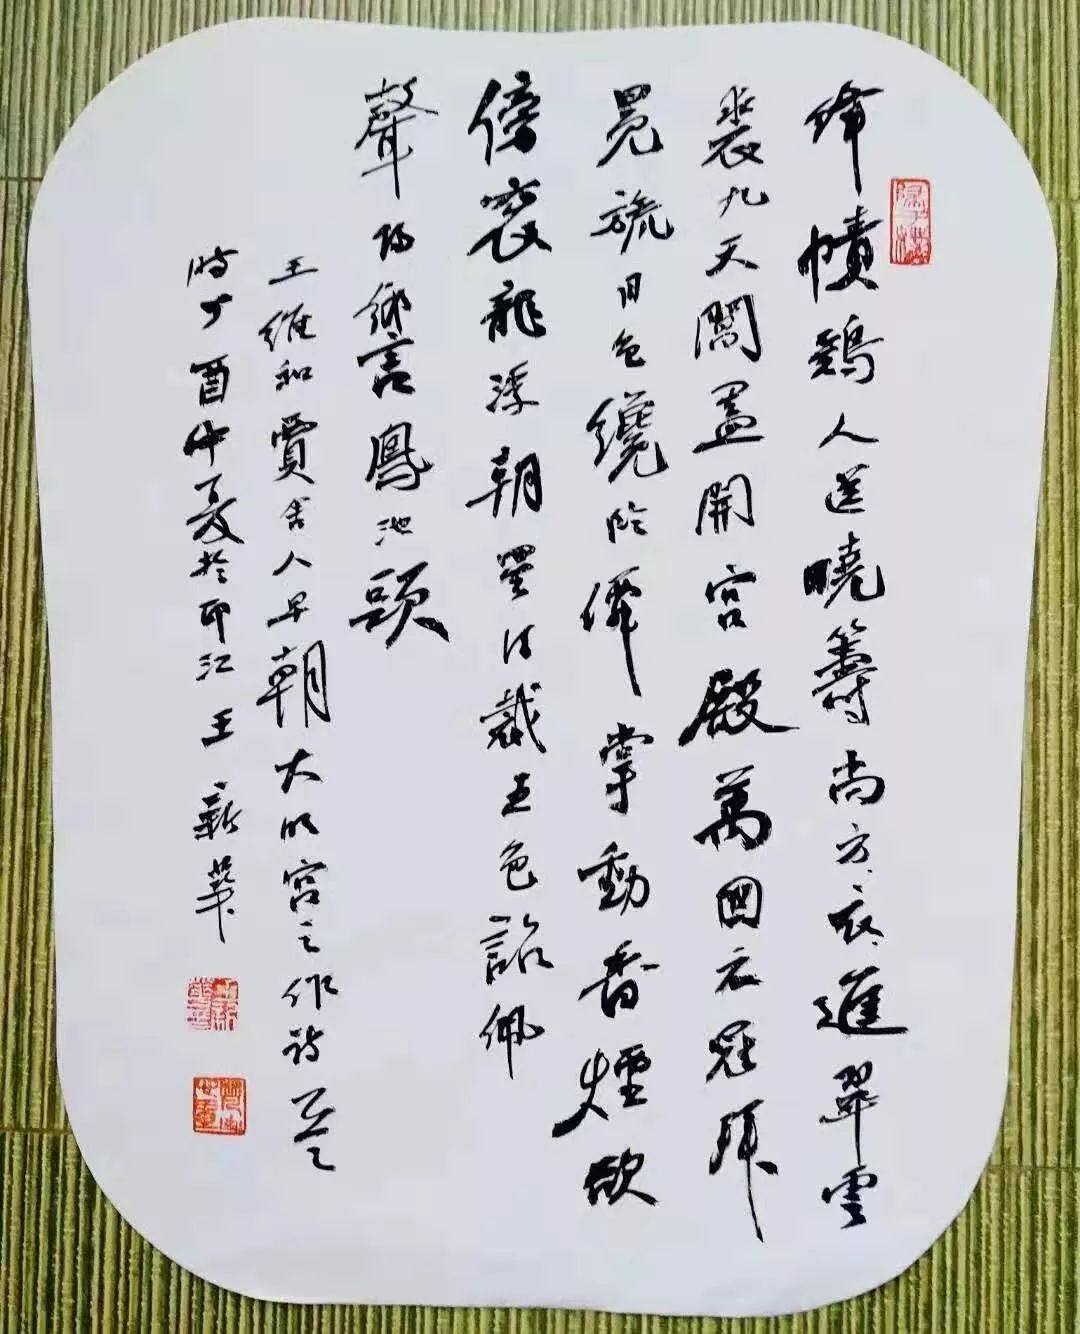 絳幘鷄人送曉籌尚方衣進翠雲
裘九天閶闔開宮殿萬國衣冠拜
冕旒日色纔臨僊掌動香煙欲
傍袞龍浮朝罷須裁五色詔佩
聲歸嚮鳳池頭
王維和賈舍人早朝大明宮之作詩
時丁酉仲夏於印江王新華